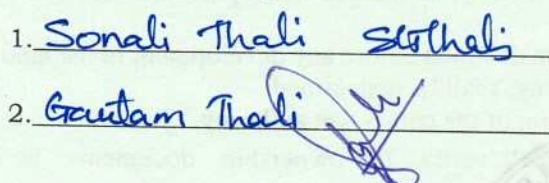 1. Sonali Thali
2. Gautam Thali